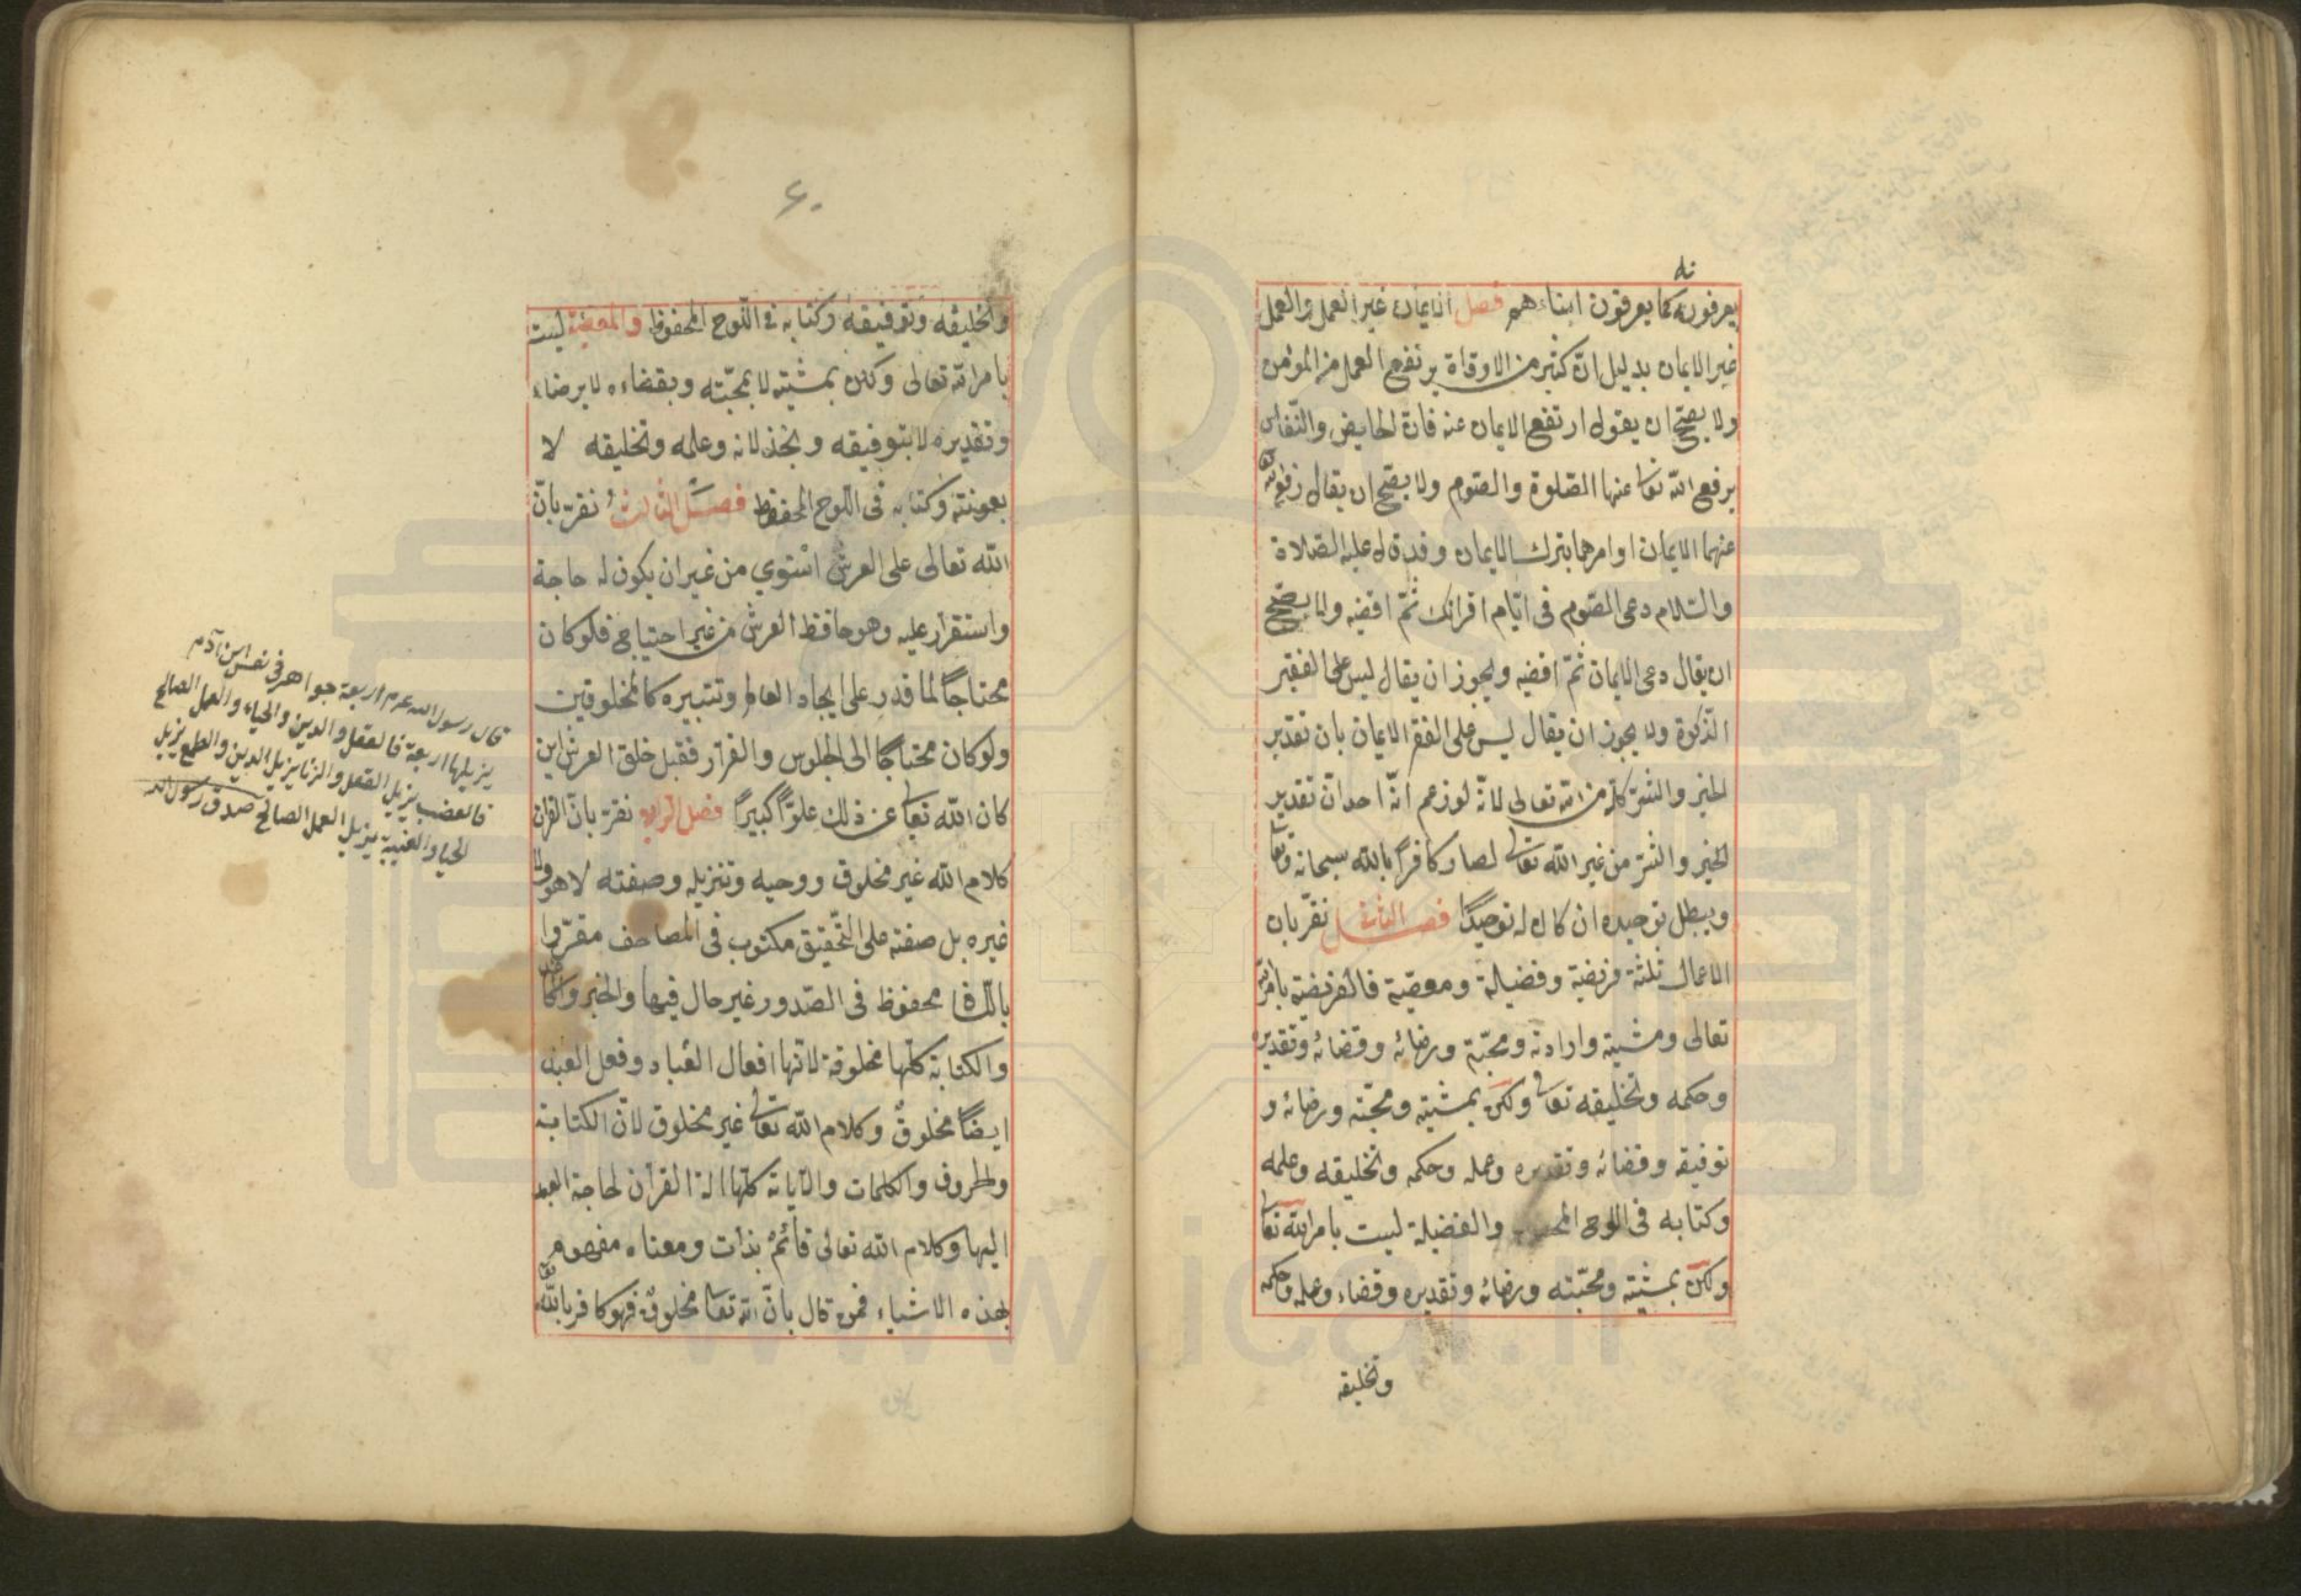 نه
يعرفونه كما يعرفون ابناءهم فصل الايمان غير العمل والعمل
غير الايمان بدليل ان كثير من الاوقاة يرتفع العمل من المؤمن
ولا يصح ان يقول ارتفع الايمان عنه فان الحايض والنفاس
يرفع الله تعا عنها الصلوة والصوم ولا يصح ان يقال رفع الله
عنهما الايمان اوامرهما بترك الايمان وقد قال عليه الصلاة
والسلام دعى الصوم فى ايام اقرائك ثم اقضيه ولا يصح
ان يقال دعى الايمان ثم اقضيه ويجوز ان يقال ليس على الفقير
الذكوة ولا يجوز ان يقال ليس على الفقر الايمان بان تقدير
الخير والشر كله من الله تعالى لانه لو زعم انه احد ان تقدير
الخير والشر من غير الله تعالى لصار كافرا بالله سبحانه وتعا
ويبطل توحيده ان كان له توحيدا فصل الثانى نقر بان
الاعمال ثلثة فريضة وفضيلة ومعصية فالفريضة بامر الله
تعالى ومشيته وارادته ومحبته ورضائه وقضائه وتقديره
وحكمه وتخليقه تعالى ولكن بمشيته ومحبته ورضائه و
توفيقه وقضائه وتقديره وعمله وحكمه وتخليقه وعلمه
وكتابه فى اللوح والفضيلة ليست بامر الله تعا
ولكن بمشيته ومحبته ورضائه وتقديره وقضاء وعلمه وحكمه
وتخليقه
۶۰
وتخليقه وتوفيقه وكتابه فى اللوح المحفوظ والمعصية ليست
بامر الله تعالى ولكن بمشيته لا بمحبته وبقضاءه لا برضاء
وتقديره لا بتوفيقه وبخذلانه وعلمه وتخليقه لا
بمعونته وكتابه فى اللوح المحفوظ فصل الثالث نقر بان
الله تعالى على العرش استوي من غير ان يكون له حاجة
واستقرار عليه وهو حافظ العرش من غير احتياج فلو كان
محتاجا لما قدر على ايجاد العالم وتتبيره كالمخلوقين
ولو كان محتاجا الى الجلوس والقرار فقبل خلق العرش اين
كان الله تعا عن ذلك علوا كبيرا فصل الرابع نقر بان القران
كلام الله غير مخلوق ووحيه وتنزيله وصفته لا هو ولا
غيره بل صفته على التحقيق مكتوب فى المصاحف مقروا
محفوظ فى الصدور غير حال فيها والحبر والكاغذ
والكتابة كلها مخلوقة لانها افعال العباد وفعل العبد
ايضا مخلوق وكلام الله تعالى غير مخلوق لان الكتابة
والحروف والكلمات والاياة كلها الة القران لحاجة العبد
اليها وكلام الله تعالى قائم بذات ومعناه مفهوم
بهذه الاشياء فمن قال بان الله تعا مخلوق فهو كافر بالله تعا
قال رسول الله عم اربعة جواهر فى نفس ابن آدم
يزيلها اربعة فالعقل والدين والحياء والعمل الصالح
فالغضب يزيل العقل والزنا يزيل الدين والطمع يزيل
الحيا والغيبة يزيل العمل الصالح صدق رسول الله